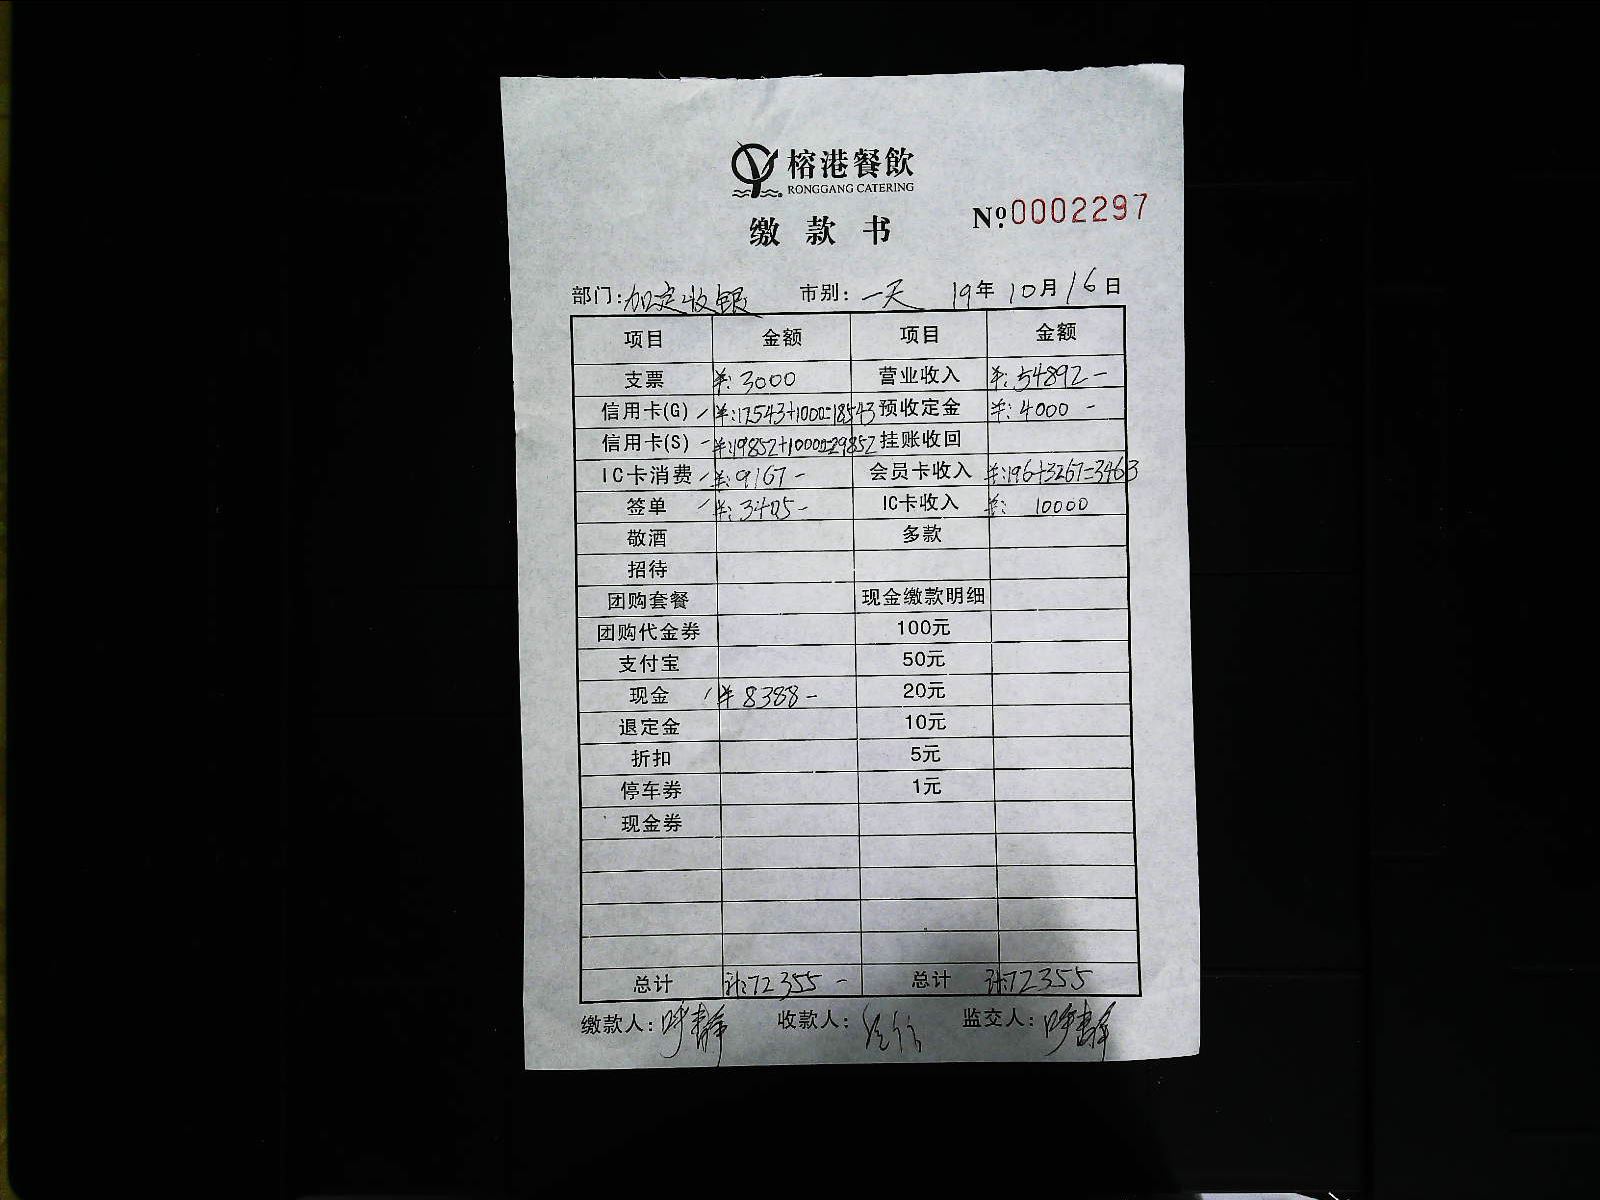 榕港餐飲
RONGGANG CATERING
缴款书 Nº.0002297
部门:加定收银 市别:一天 19年10月16日
项目 金额 项目 金额
支票 ¥:3000 营业收入 ¥:54892-
信用卡(G) ¥:17543+1000=18543 预收定金 ¥:4000-
信用卡(S) ¥:19852+10000=29852 挂账收回
IC卡消费 ¥:9167- 会员卡收入 ¥:196+3267=3463
签单 ¥:3405- IC卡收入 ¥:10000
敬酒 多款
招待
团购套餐 现金缴款明细
团购代金券 100元
支付宝 50元
现金 ¥8388- 20元
退定金 10元
折扣 5元
停车券 1元
现金券
总计 计:72355- 总计 计:72355
缴款人: 收款人: 监交人: